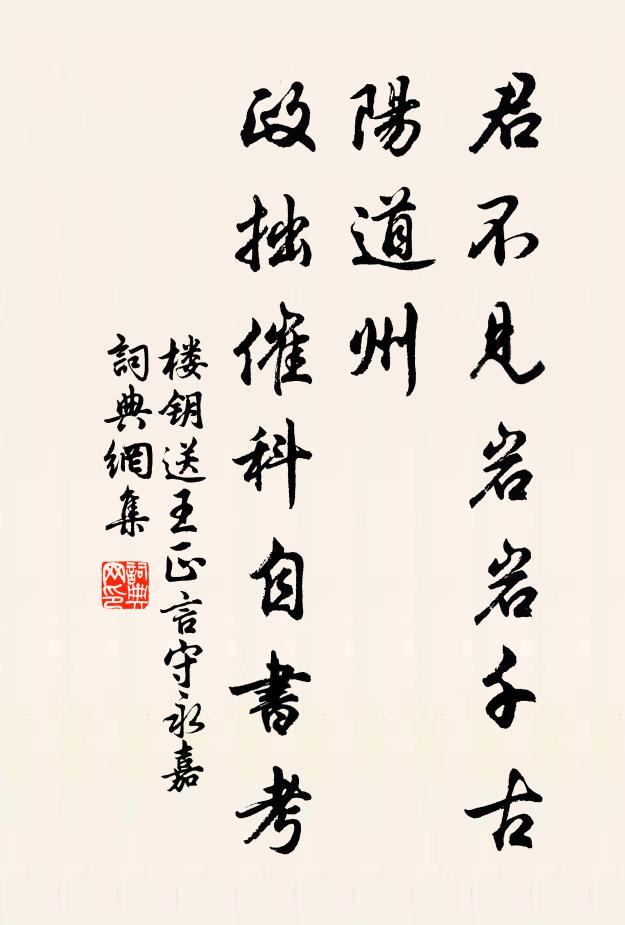 君不见岩岩千古
陽道州
政拙催科自書考
楼钥送王正言守永嘉
詞典網集
詞典
网印